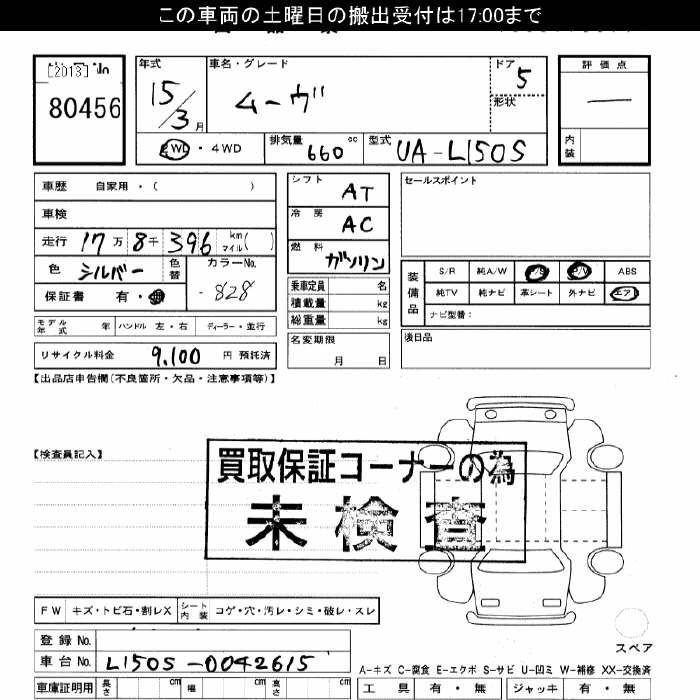 この車両の土曜日の搬出受付は17:00まで
[2013]
80456
年式
15/3月
車名・グレード
ムーヴ
ドア 5
形状
評価点
―
内装
2WD・4WD
排気量 660 cc
型式 UA-L150S
車歴 自家用・( )
車検
走行 17万8千396 km マイル( )
色 シルバー
色替
カラーNo. -828
保証書 有・
モデル年式 年 ハンドル 左・右 ディーラー・並行
リサイクル料金 9,100 円 預託済
シフト AT
冷房 AC
燃料 ガソリン
乗車定員 名
積載量 kg
総重量 kg
名変期限
月 日
セールスポイント
装備品
S/R 純A/W P/S P/W ABS
純TV 純ナビ 革シート 外ナビ エアB
ナビ型番:
後日品
【出品店申告欄(不良箇所・欠品・注意事項等)】
【検査員記入】
買取保証コーナーの為
未検査
FW キズ・トビ石・割レX シート内装 コゲ・穴・汚レ・シミ・破レ・スレ
登録 No.
車台 No. L150S-0042615
車庫証明用 長さ cm 幅 cm 高さ cm
スペア
A-キズ C-腐食 E-エクボ S-サビ U-凹ミ W-補修 XX-交換済
工具 有・無 ジャッキ 有・無